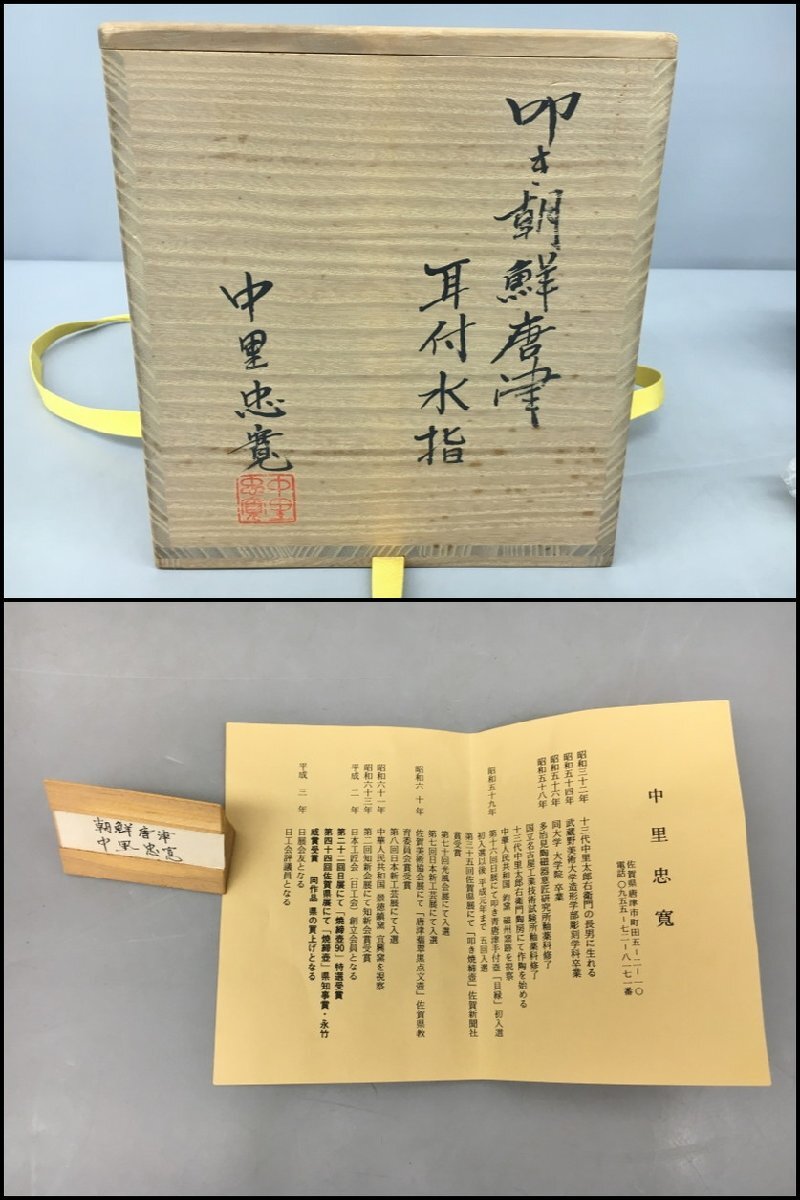 叩き朝鮮唐津
耳付水指
中里忠寛
中里
忠寛
朝鮮唐津
中里忠寛
中里忠寛
佐賀県唐津市町田五ー二ー一〇
電話〇九五五ー七二ー八一七一番
昭和三十二年 十三代中里太郎右衛門の長男に生れる
昭和五十四年 武蔵野美術大学造形学部彫刻学科卒業
昭和五十六年 同大学 大学院 卒業
昭和五十八年 多治見陶磁器意匠研究所釉薬科修了
国立名古屋工業技術試験所釉薬科修了
十三代中里太郎右衛門陶房にて作陶を始める
中華人民共和国 鈞窯 磁州窯跡を視察
昭和五十九年 第十六回日展にて叩き青唐津手付壺「目緑」初入選
初入選以後 平成元年まで 五回入選
第三十五回佐賀県展にて「叩き焼締壺」佐賀新聞社
賞受賞
第七十回光風会展にて入選
第七回日本新工芸展にて入選
昭和六十年 佐賀美術協会展にて「唐津翡翠黒点文壺」佐賀県教
育委員会賞受賞
第八回日本新工芸展にて入選
昭和六十一年 中華人民共和国 景徳鎮窯 宜興窯を視察
昭和六十三年 第二回知新会展にて知新会賞受賞
平成二年 日本工匠会(日工会)創立会員となる
第二十二回日展にて「焼締壺90」特選受賞
第四十四回佐賀県展にて「焼締壺」県知事賞・永竹
威賞受賞 同作品 県の買上げとなる
平成三年 日展会友となる
日工会評議員となる